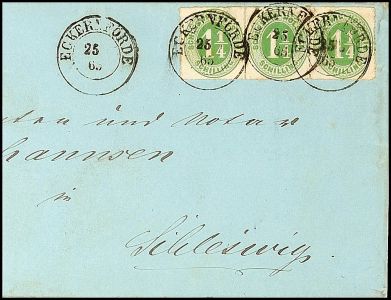 ECKERNFÖRDE
25
65
ECKERNFÖRDE
25
65
ECKERNFÖRDE
25
ECKERNFÖRDE
25
65
1¼
SCHILLING
1¼
SCHILLING
1¼
SCHILLING
und Notar
hannsen
in
Schleswig.